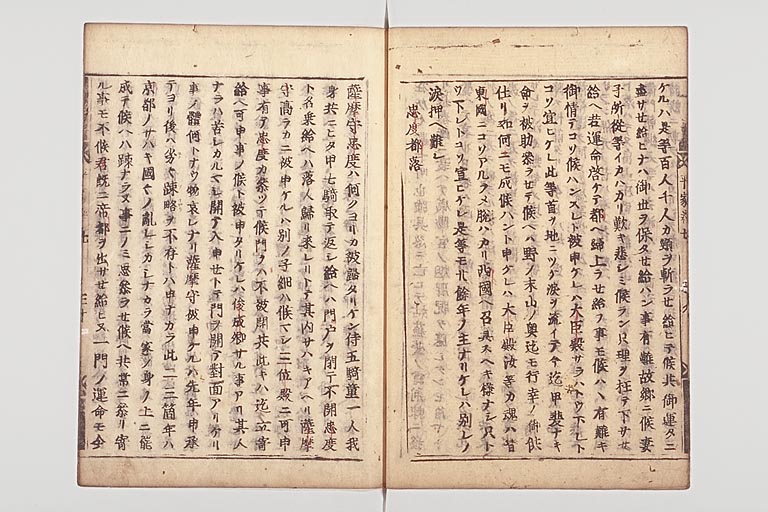 ケルハ是等百人千人カ頸ヲ斬ラせ給ヒテ候共御運タニ
盡サせ給ヒナハ御世ヲ保タせ給ハン事有難故郷ニ候妻
子所從等イカハカリ歎キ悲シミ候ラン只理ヲ枉テ下サせ
給ヘ若運命啓ケテ都ヘ歸上ラせ給フ事モ候ハヽ有難キ
御情テコソ候ハンスレト被申ケレハ大臣殿サラハトウ下レト
コソ宣ヒケレ此等首ヲ地ニツケ淚ヲ流イテ今迄甲斐ナキ
命ヲ被助參ラせテ候ヘハ野ノ末山ノ奧迄モ行幸ノ御供
仕リ如何ニモ成候ハント申ケレハ大臣殿汝等カ魂ハ皆
東國ニコソアルラメ脱ハカリ西國ヘ召具スヘキ樣ナシ只ト
ウ下レトコソ宣ヒケレ是等モ廿餘年ノ主ナリケレハ別レノ
淚押ヘ難シ
忠度都落
薩摩守忠度ハ何クヨリカ被歸タリケン侍五騎童一人我
身共ニヒタ甲七騎取テ返シ給ヘハ門戸ヲ閉テ不開忠度
ト名乘給ヘハ落人歸リ來レリトテ其内サハキアヘリ薩摩
守高ラカニ被申ケルハ別ノ子細ハ候マシ三位殿ニ可申
事有テ忠度カ參ツテ候門ヲハ不被開共此キハ迄立寄
給ヘ可申事ノ候ト被申タリケレハ俊成卿サル事アリ其人
ナラハ苦シカルマシ開テ入申せトテ門ヲ開テ對面アリケリ
事ノ體何トナウ物哀レナリ薩摩守被申ケルハ先年申承
テヨリ後ハ劣モ疎略ヲ不存トハ申ナカラ此二三箇年ハ
京都ノサハキ國々ノ亂レシカシナカラ當家ノ身ノ上ニ罷
成テ候ヘハ疎ナラヌ事ニノミ思參ラせ候ヘ共常ニ參リ寄
ル事モ不候君既ニ帝都ヲ出サせ給ヒヌ一門ノ運命モ今